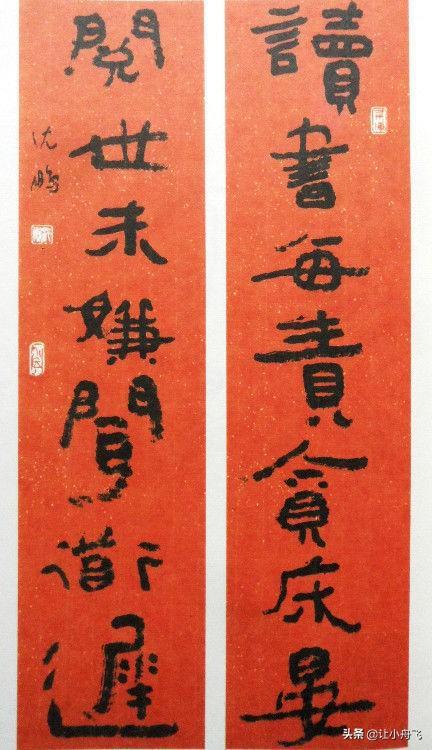 讀書每責貪床晏
閱世未嫌聞道遲
沈鵬
头条 @让小舟飞